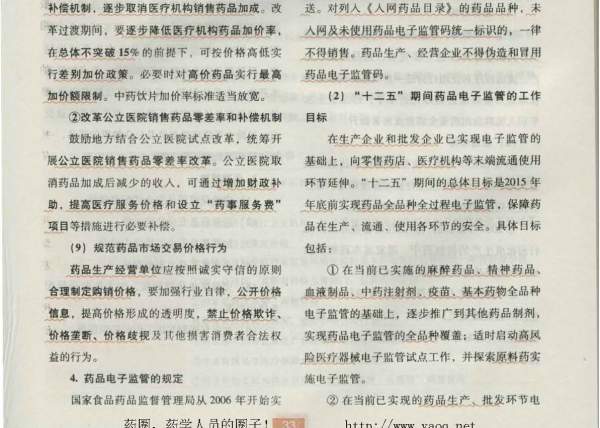 补偿机制，逐步取消医疗机构销售药品加成。改
革过渡期间，要逐步降低医疗机构药品加价率，
在总体不突破15%的前提下，可按价格高低实
行差别加价政策。必要时对高价药品实行最高
加价额限制。中药饮片加价率标准适当放宽。
②改革公立医院销售药品零差率和补偿机制
鼓励地方结合公立医院试点改革，统筹开
展公立医院销售药品零差率改革。公立医院取
消药品加成后减少的收入，可通过增加财政补
助，提高医疗服务价格和设立“药事服务费”
项目等措施进行必要补偿。
（9）规范药品市场交易价格行为
药品生产经营单位应按照诚实守信的原则
合理制定购销价格，要加强行业自律，公开价格
信息，提高价格形成的透明度，禁止价格欺诈、
价格垄断、价格歧视及其他损害消费者合法权
益的行为。
4. 药品电子监管的规定
国家食品药品监督管理局从2006年开始实
送。对列入《入网药品目录》的药品品种，未
入网及未使用药品电子监管码统一标识的，一律
不得销售。药品生产、经营企业不得伪造和冒用
药品电子监管码。
（2）“十二五”期间药品电子监管的工作
目标
在生产企业和批发企业已实现电子监管的
基础上，向零售药店、医疗机构等末端流通使用
环节延伸。“十二五”期间的总体目标是2015年
年底前实现药品全品种全过程电子监管，保障药
品在生产、流通、使用各环节的安全。具体目标
包括：
①在当前已实施的麻醉药品、精神药品、
血液制品、中药注射剂、疫苗、基本药物全品种
电子监管的基础上，逐步推广到其他药品制剂，
实现药品电子监管的全品种覆盖；适时启动高风
险医疗器械电子监管试点工作，并探索原料药实
施电子监管。
②在当前已实现的药品生产、批发环节电
药圈，药学人员的圈子！ 33 http://www.yaoq.net